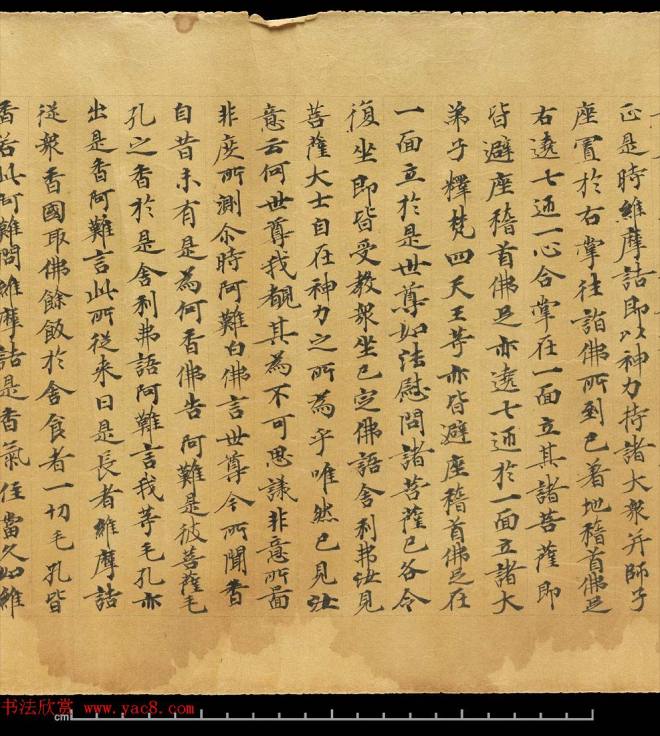 正是時維摩詰即以神力持諸大衆并師子
座置於右掌往詣佛所到已著地稽首佛足
右遶七迊一心合掌在一面立其諸菩薩即
皆避座稽首佛足亦遶七迊於一面立諸大
弟子釋梵四天王等亦皆避座稽首佛足在
一面立於是世尊如法慰問諸菩薩已各令
復坐即皆受教衆坐已定佛語舍利弗汝見
菩薩大士自在神力之所為乎唯然已見汝
意云何世尊我覩其為不可思議非意所啚
非度所測尒時阿難白佛言世尊今所聞香
自昔未有是為何香佛告阿難是彼菩薩毛
孔之香於是舍利弗語阿難言我等毛孔亦
出是香阿難言此所從来曰是長者維摩詰
從衆香國取佛餘飯於舍食者一切毛孔皆
香若此阿難問維摩詰是香氣住當久如維
书法欣赏
www.yac8.com
cm